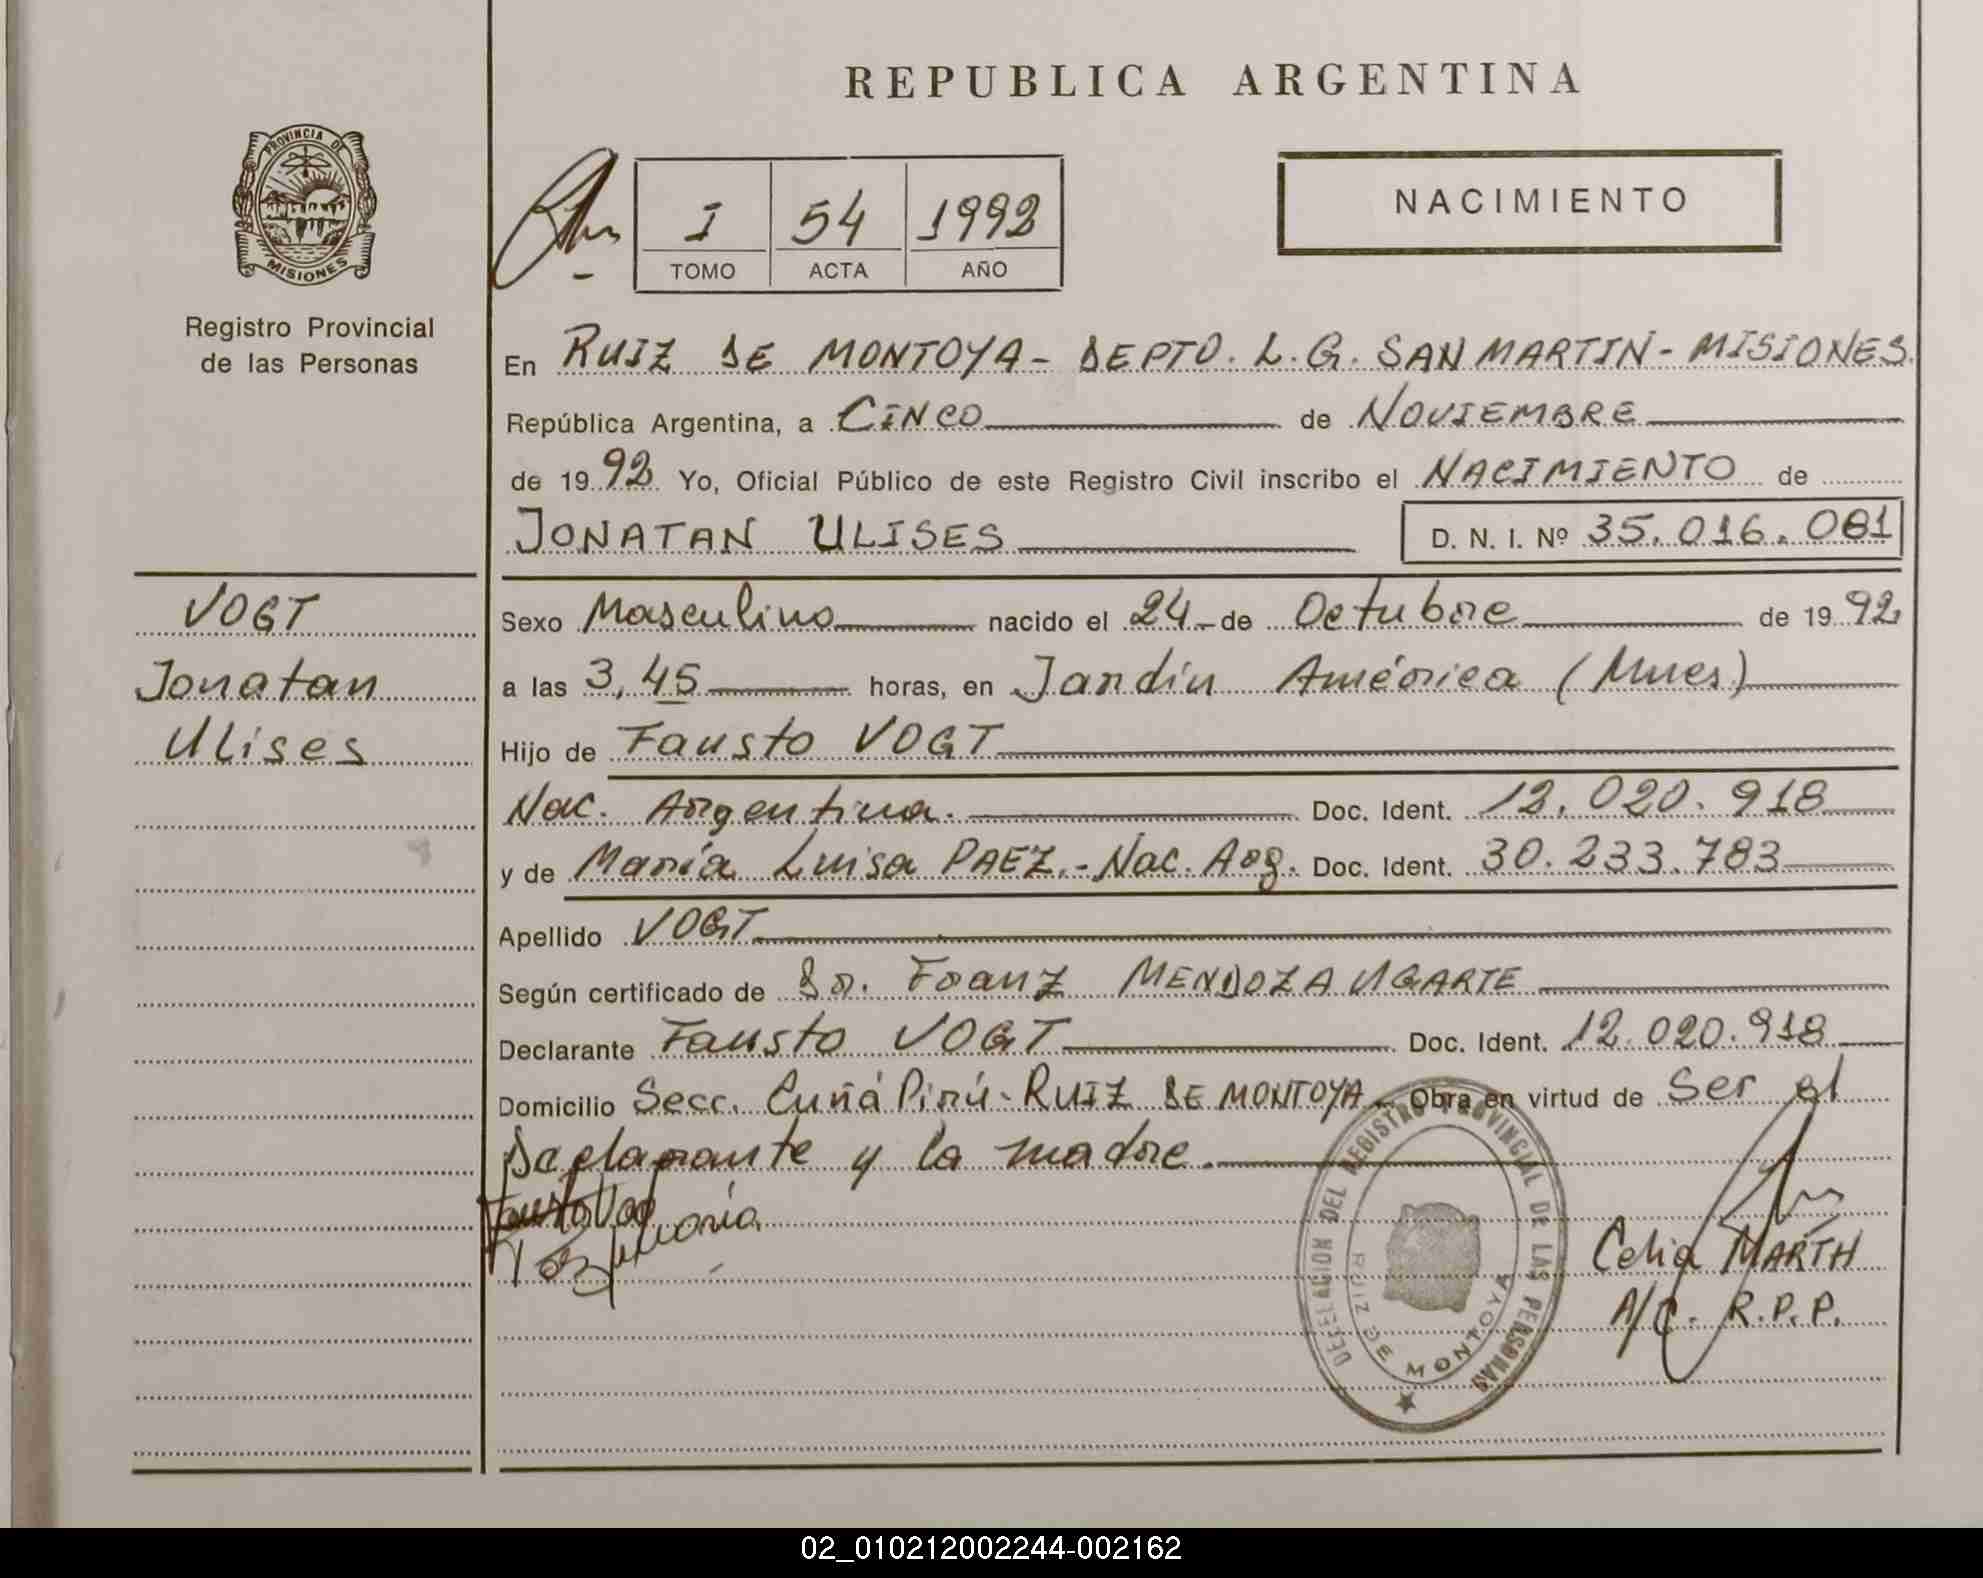 REPUBLICA ARGENTINA
PROVINCIA DE
MISIONES
Registro Provincial
de las Personas
I 54 1992
TOMO ACTA AÑO
NACIMIENTO
En RUIZ DE MONTOYA - DEPTO. L. G. SAN MARTIN - MISIONES.
República Argentina, a CINCO de NOVIEMBRE
de 1992 Yo, Oficial Público de este Registro Civil inscribo el NACIMIENTO de
JONATAN ULISES D. N. I. Nº 35.016.081
VOGT
Jonatan
Ulises
Sexo Masculino nacido el 24 de Octubre de 1992
a las 3,45 horas, en Jardín América (Mnes)
Hijo de Fausto VOGT
Nac. Argentina. Doc. Ident. 12.020.918
y de María Luisa PAEZ.- Nac. Arg. Doc. Ident. 30.233.783
Apellido VOGT
Según certificado de Dr. Franz MENDOZA UGARTE
Declarante Fausto VOGT Doc. Ident. 12.020.918
Domicilio Secc. Cuñá Pirú - RUIZ DE MONTOYA Obra en virtud de Ser el
Declarante y la madre.
Fausto Vogt
Paez María
DELEGACION DEL REGISTRO PROVINCIAL DE LAS PERSONAS
RUIZ DE MONTOYA
Celia MARTH
A/C. R.P.P.
02_010212002244-002162